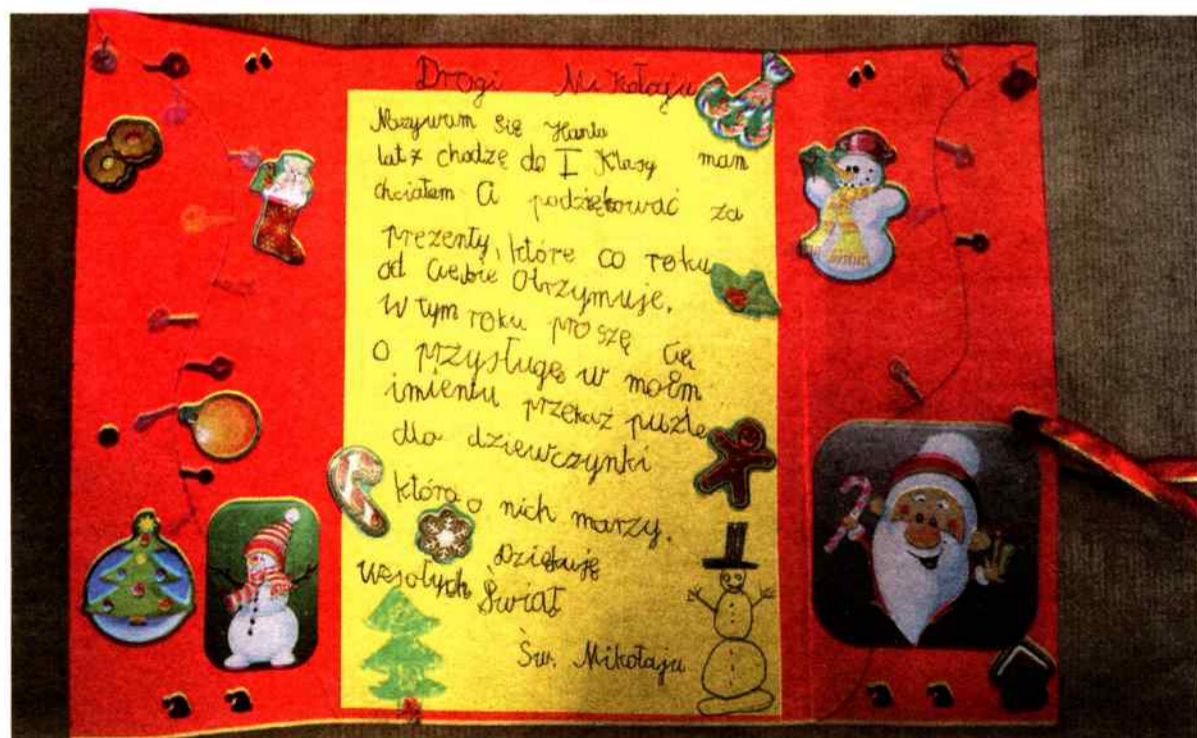 Drogi Mikołaju
Nazywam się Hania
lat 7 chodzę do I Klasy mam
chciałam Ci podziękować za
prezenty, które co roku
od Ciebie Otrzymuje.
W tym roku proszę Cię
o przysługę w moim
imieniu przekaż puzle
dla dziewczynki
która o nich marzy.
Dziękuję
wesołych Świąt
Św. Mikołaju